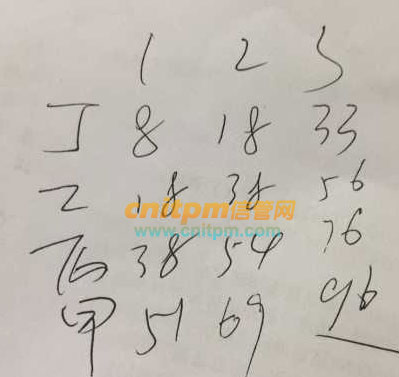 1 2 3
丁 8 18 33
乙 18 38 56
cnitpm信管网
www.cnitpm.com
丙 38 54 76
甲 51 69 96